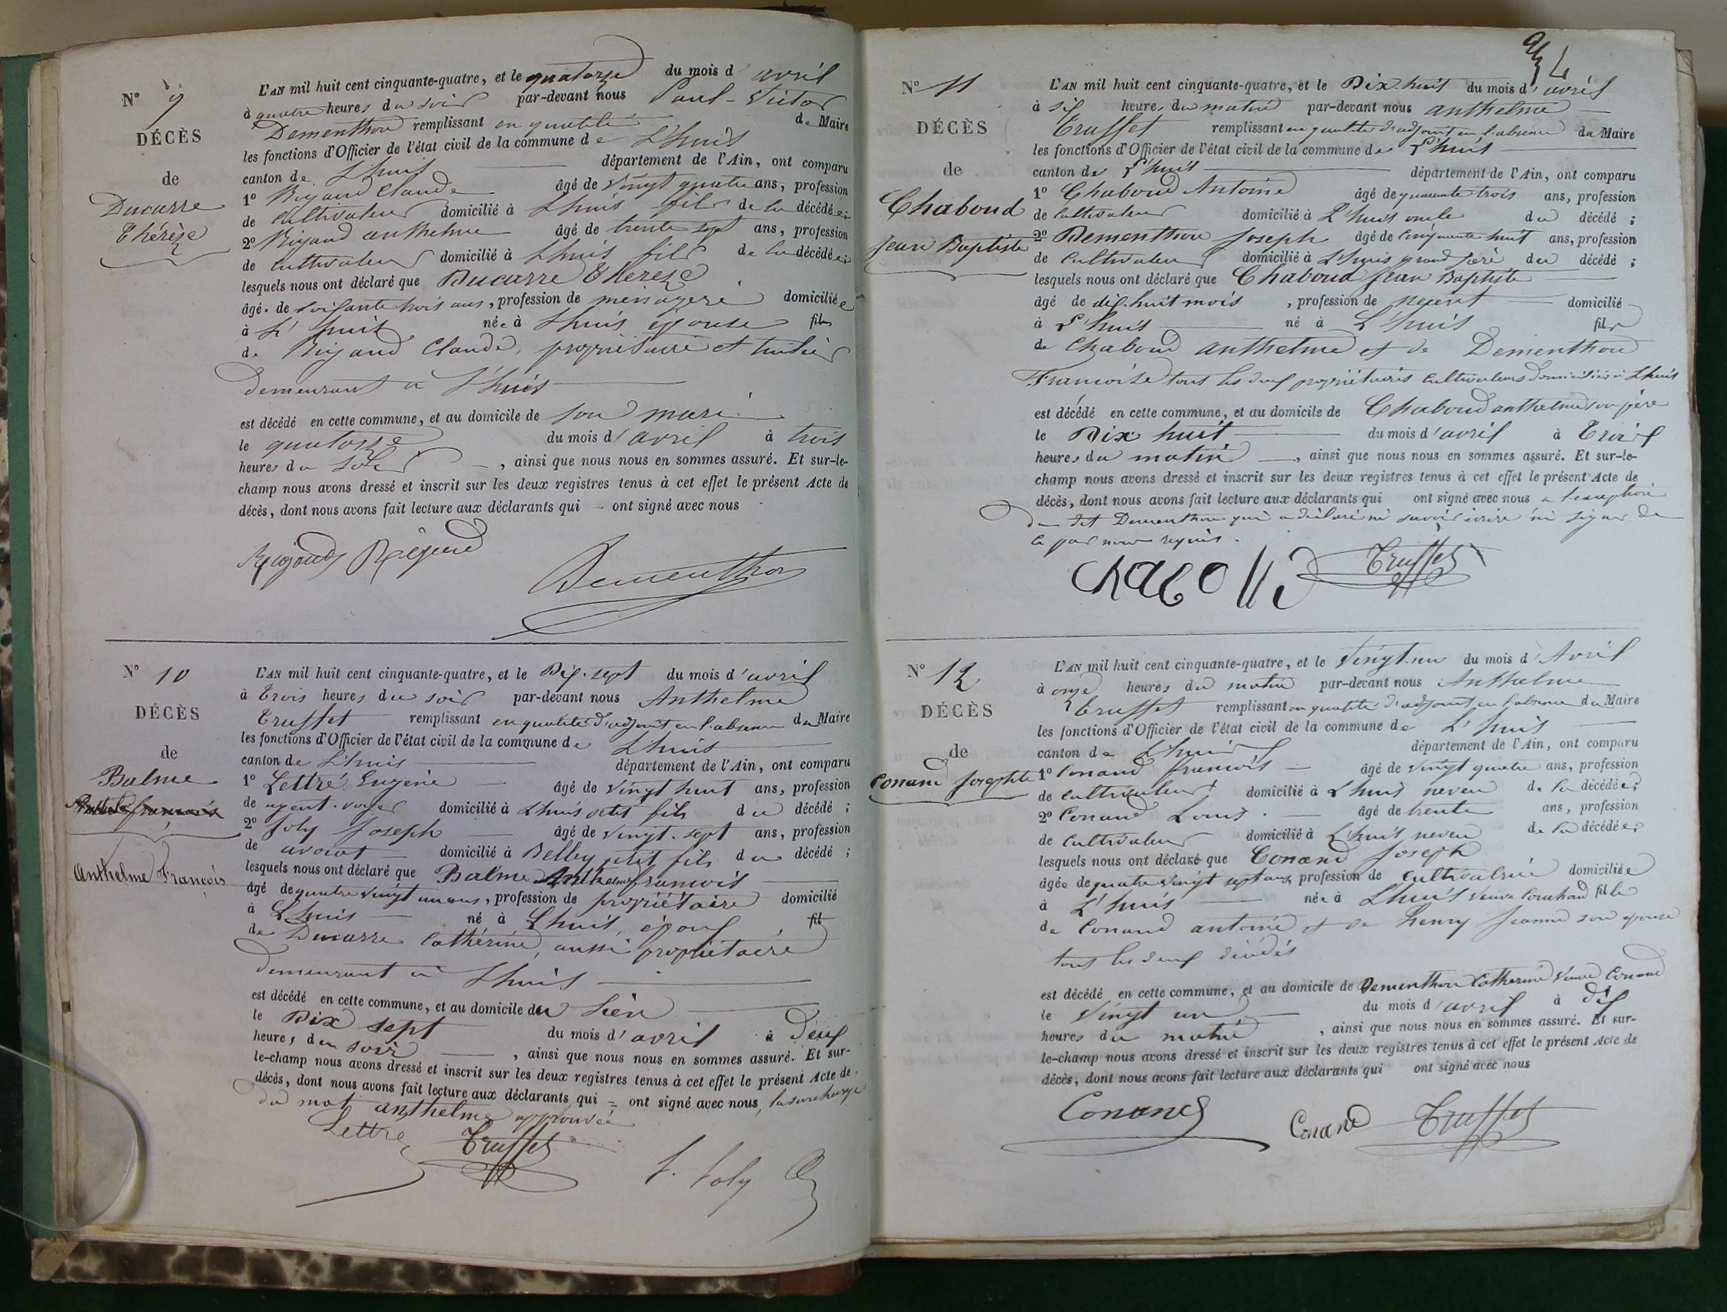 N° 9
DÉCÈS
de
Ducarre
Thérèze
L'AN mil huit cent cinquante-quatre, et le quatorze du mois d'avril
à quatre heures du soir par-devant nous Paul-Victor
Dementhon remplissant en qualité de Maire
les fonctions d'Officier de l'état civil de la commune de L'huis
canton de L'huis département de l'Ain, ont comparu
1° Rigaud Claude âgé de vingt quatre ans, profession
de cultivateur domicilié à L'huis fils de la décédée;
2° Rigaud anthelme âgé de trente sept ans, profession
de cultivateur domicilié à L'huis fils de la décédée;
lesquels nous ont déclaré que Ducarre Thérèze
âgée de soixante trois ans, profession de menagère domiciliée
à L'huis née à L'huis épouse fils
de Rigaud Claude, propriétaire et
demeurant à L'huis
est décédé en cette commune, et au domicile de son mari
le quatorze du mois d'avril à trois
heures du soir, ainsi que nous nous en sommes assuré. Et sur-le-
champ nous avons dressé et inscrit sur les deux registres tenus à cet effet le présent Acte de
décès, dont nous avons fait lecture aux déclarants qui ont signé avec nous
Rigaud Rigaud
Dementhon
N° 10
DÉCÈS
de
Balme
Anthelme François
L'AN mil huit cent cinquante-quatre, et le Dix-sept du mois d'avril
à Trois heures du soir par-devant nous Anthelme
Truffet remplissant en qualité d'adjoint en l'absence du Maire
les fonctions d'Officier de l'état civil de la commune de L'huis
canton de L'huis département de l'Ain, ont comparu
1° Lettré Eugène âgé de vingt huit ans, profession
de agent-voyer domicilié à L'huis petit fils du décédé;
2° Joly Joseph âgé de vingt-sept ans, profession
de avocat domicilié à Belley petit fils du décédé;
lesquels nous ont déclaré que Balme Anthelme françois
âgé de quatre vingt un ans, profession de propriétaire domicilié
à L'huis né à L'huis, époux fils
de Ducarre Cathérine, aussi propriétaire
demeurant à L'huis
est décédé en cette commune, et au domicile du sien
le Dix sept du mois d'avril à deux
heures du soir, ainsi que nous nous en sommes assuré. Et sur-
le-champ nous avons dressé et inscrit sur les deux registres tenus à cet effet le présent Acte de
décès, dont nous avons fait lecture aux déclarants qui ont signé avec nous, la surcharge
du mot anthelme approuvée
Lettré Truffet J. Joly
N° 11
DÉCÈS
de
Chaboud
Jean Baptiste
L'AN mil huit cent cinquante-quatre, et le Dix huit du mois d'avril
à six heures du matin par-devant nous anthelme
Truffet remplissant en qualité d'adjoint en l'absence du Maire
les fonctions d'Officier de l'état civil de la commune de L'huis
canton de L'huis département de l'Ain, ont comparu
1° Chaboud Antoine âgé de quarante trois ans, profession
de cultivateur domicilié à L'huis oncle du décédé;
2° Dementhon Joseph âgé de cinquante huit ans, profession
de cultivateur domicilié à L'huis grand père du décédé;
lesquels nous ont déclaré que Chaboud Jean Baptiste
âgé de dix-huit mois, profession de domicilié
à L'huis né à L'huis fils
de Chaboud anthelme et de Dementhon
Françoise tous les deux propriétaires cultivateurs domiciliés à L'huis
est décédé en cette commune, et au domicile de Chaboud anthelme son père
le Dix huit du mois d'avril à trois
heures du matin, ainsi que nous nous en sommes assuré. Et sur-le-
champ nous avons dressé et inscrit sur les deux registres tenus à cet effet le présent Acte de
décès, dont nous avons fait lecture aux déclarants qui ont signé avec nous a l'exception
du dit Dementhon qui a déclaré ni savoir écrire ni signer de
ce par nous requis.
Truffet
N° 12
DÉCÈS
de
Conand Josephte
L'AN mil huit cent cinquante-quatre, et le Vingt-un du mois d'Avril
à onze heures du matin par-devant nous Anthelme
Truffet remplissant en qualité d'adjoint en l'absence du Maire
les fonctions d'Officier de l'état civil de la commune de L'huis
canton de L'huis département de l'Ain, ont comparu
1° Conand françois âgé de vingt quatre ans, profession
de cultivateur domicilié à L'huis neveu de la décédée;
2° Conand Louis âgé de trente ans, profession
de cultivateur domicilié à L'huis neveu de la décédée;
lesquels nous ont déclaré que Conand Joseph
âgée de quatre vingt sept ans, profession de cultivatrice domiciliée
à L'huis née à L'huis veuve fille
de Conand antoine et de Henry Jeanne son épouse
tous les deux décédés
est décédé en cette commune, et au domicile de Dementhon Catherine veuve Conand
le vingt un du mois d'avril à dix
heures du matin, ainsi que nous nous en sommes assuré. Et sur-
le-champ nous avons dressé et inscrit sur les deux registres tenus à cet effet le présent Acte de
décès, dont nous avons fait lecture aux déclarants qui ont signé avec nous
Conand Conand Truffet